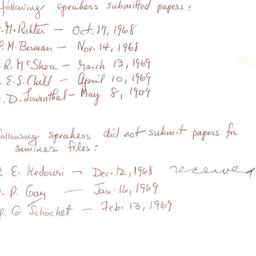 following speakers submitted papers:
. M. Richter — Oct. 19, 1968
P. M Berman — Nov. 14, 1968
R. McShea — March 13, 1969
. E. S. Chill — April 10, 1969
. D. Lowenthal — May 8, 1969
following speakers did not submit papers for
seminar files:
. E. Kedouri — Dec. 12, 1968 received
. P. Gay — Jan. 16, 1969
. G. Schochet — Feb. 13, 1969